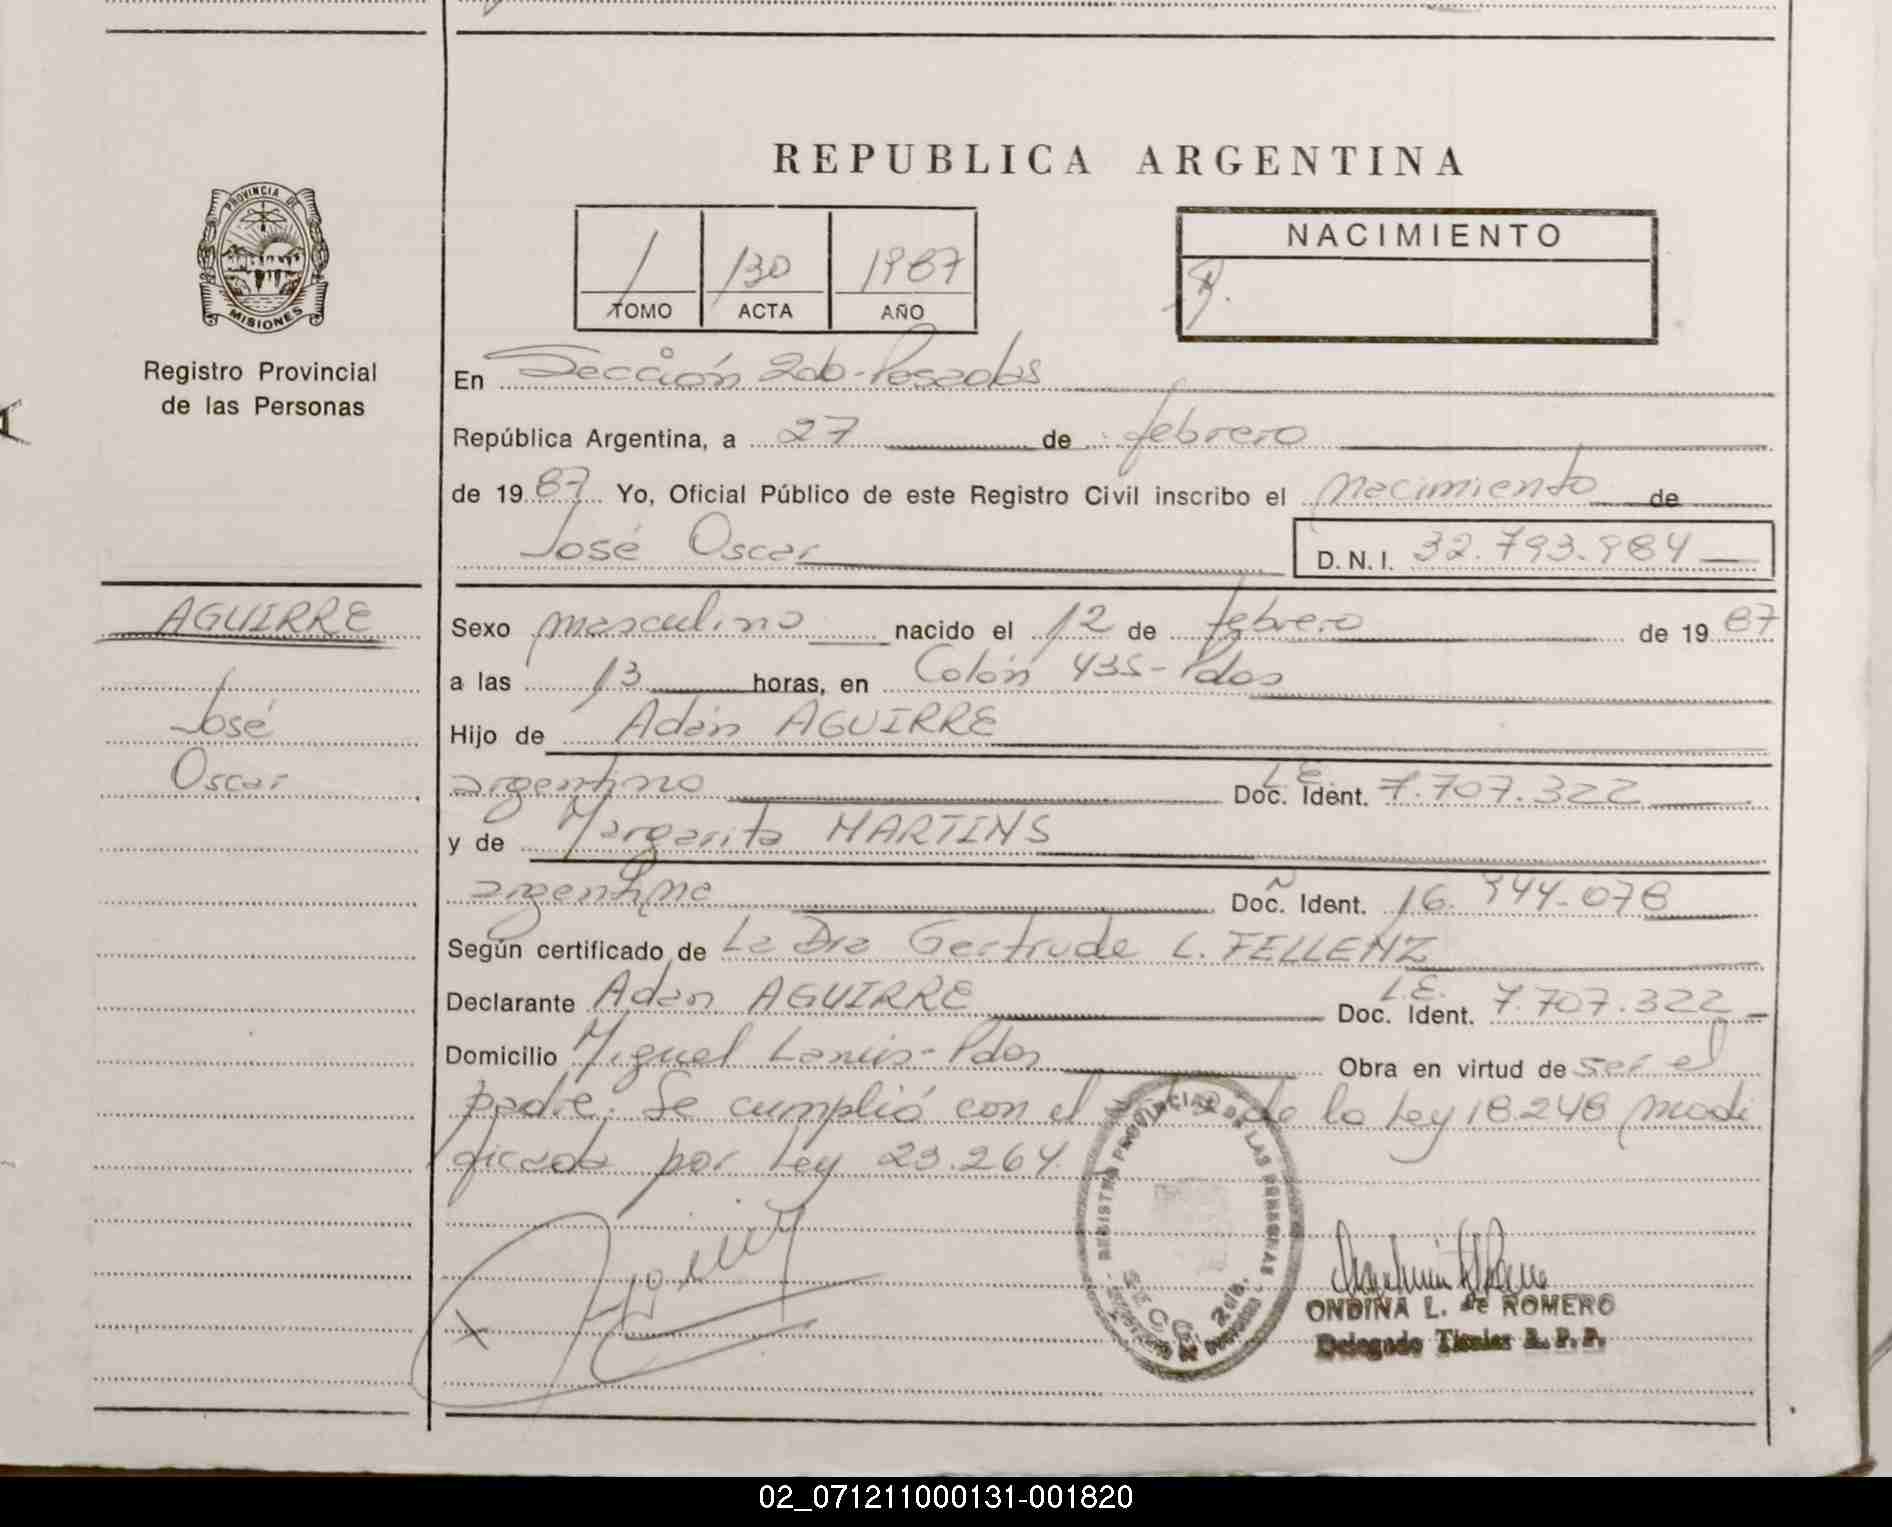 REPUBLICA ARGENTINA
PROVINCIA DE
MISIONES
Registro Provincial
de las Personas
1 130 1987
TOMO ACTA AÑO
NACIMIENTO
En Sección 2da-Posadas
República Argentina, a 27 de febrero
de 1987 Yo, Oficial Público de este Registro Civil inscribo el Nacimiento de
José Oscar D.N.I. 32.793.984
AGUIRRE
José
Oscar
Sexo masculino nacido el 12 de febrero de 1987
a las 13 horas, en Colón 435-Pdas
Hijo de Adán AGUIRRE
argentino L.E. Doc. Ident. 7.707.322
y de Margarita MARTINS
argentina Doc. Ident. 16.944.078
Según certificado de La Dra Gertrude L. FELLENZ
Declarante Adán AGUIRRE L.E. Doc. Ident. 7.707.322
Domicilio Miguel Lanús-Pdas Obra en virtud de ser el
padre. Se cumplió con el de la Ley 18.248 modi
ficada por Ley 23.264.
REGISTRO PROVINCIAL DE LAS PERSONAS
2da.
ONDINA L. de ROMERO
Delegado Titular R. P. P.
02_071211000131-001820